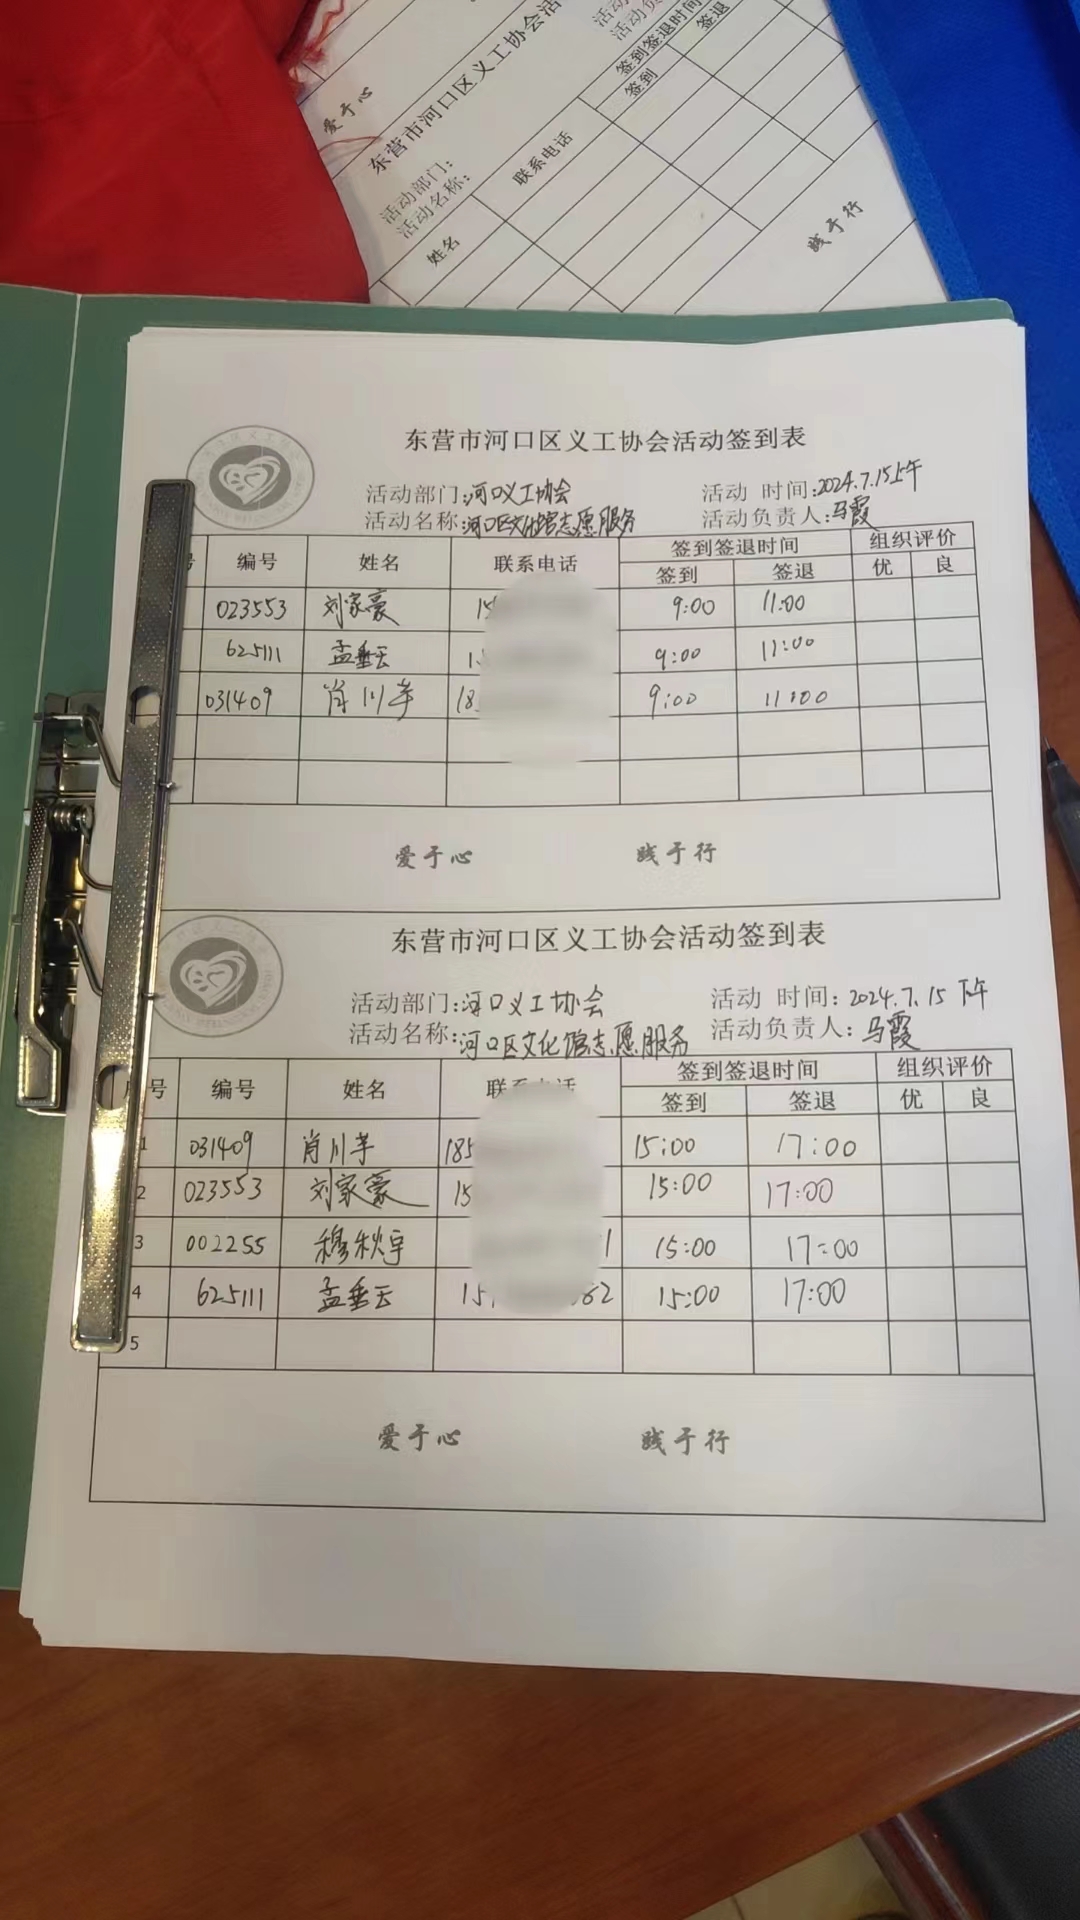 爱于心
东营市河口区义工协会活
活动部门：
活动名称：
签到签退时间
签到
签退
姓名
联系电话
践于行
东营市河口区义工协会活动签到表
活动部门:河口义工协会 活动 时间:2024.7.15上午
活动名称:河口区文化馆志愿服务 活动负责人:马霞
号 编号 姓名 联系电话 签到签退时间 组织评价
签到 签退 优 良
023553 刘家豪 15 9:00 11:00
625111 孟垂云 1 9:00 11:00
031409 肖川 18 9:00 11:00
爱于心 践于行
东营市河口区义工协会活动签到表
活动部门:河口义工协会 活动 时间: 2024.7.15 下午
活动名称:河口区文化馆志愿服务 活动负责人: 马霞
号 编号 姓名 联 话 签到签退时间 组织评价
签到 签退 优 良
1 031409 肖川 185 15:00 17:00
2 023553 刘家豪 15 15:00 17:00
3 002255 穆秋宇 1 15:00 17:00
4 625111 孟垂云 15 62 15:00 17:00
5
爱于心 践于行